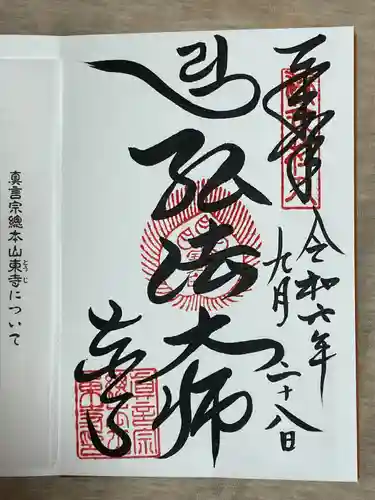 奉拝
令和六年
九月二十八日
弘法大師
東寺
真言宗總本山東寺について
とうじ